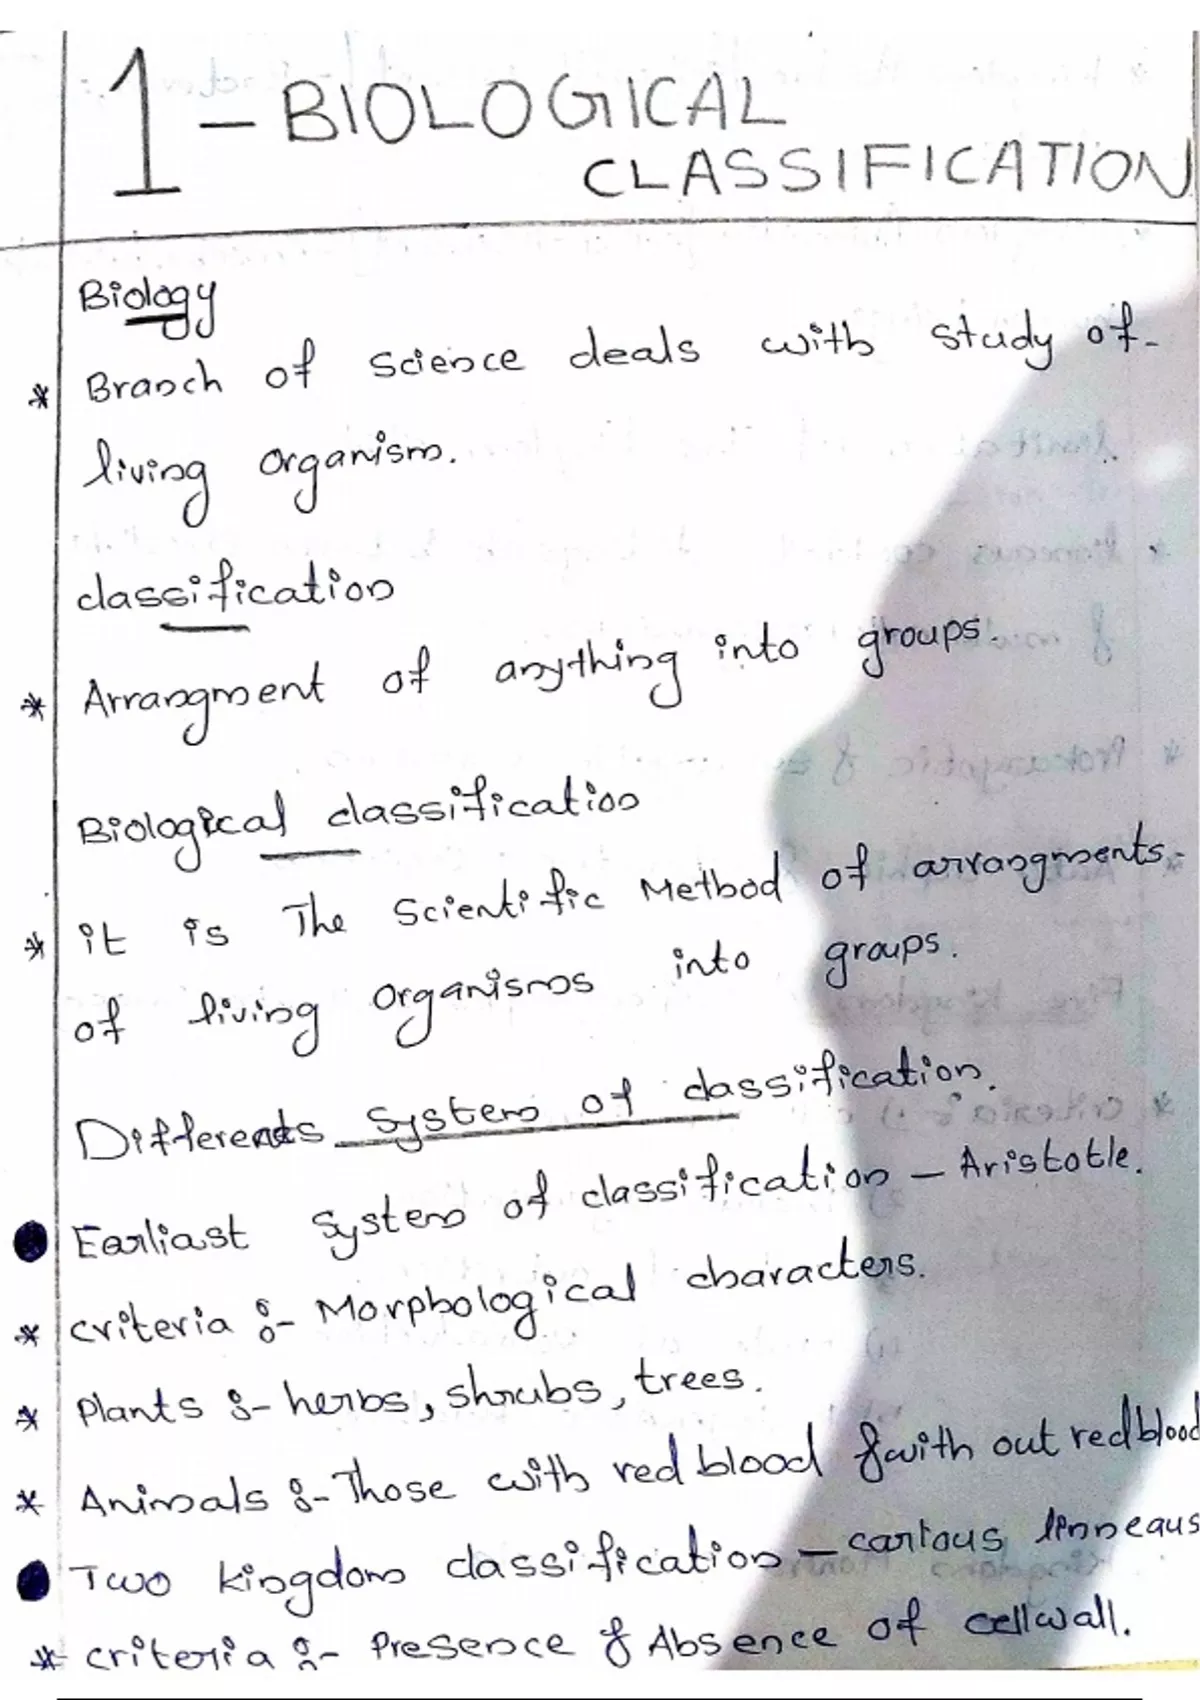 1 - BIOLOGICAL
CLASSIFICATION
Biology
* Branch of science deals with study of-
living organism.
classification
* Arrangment of anything into groups.
Biological classification
* it is The Scientific Method of arrangments.
of living organisms into groups.
Differents System of classification.
● Earliast System of classification - Aristotle.
* criteria :- Morphological characters.
* Plants :- herbs, shrubs, trees.
* Animals :- Those with red blood & with out red blood
● Two kingdom classification - carlous linneaus
* criteria :- Presence & Absence of cellwall.